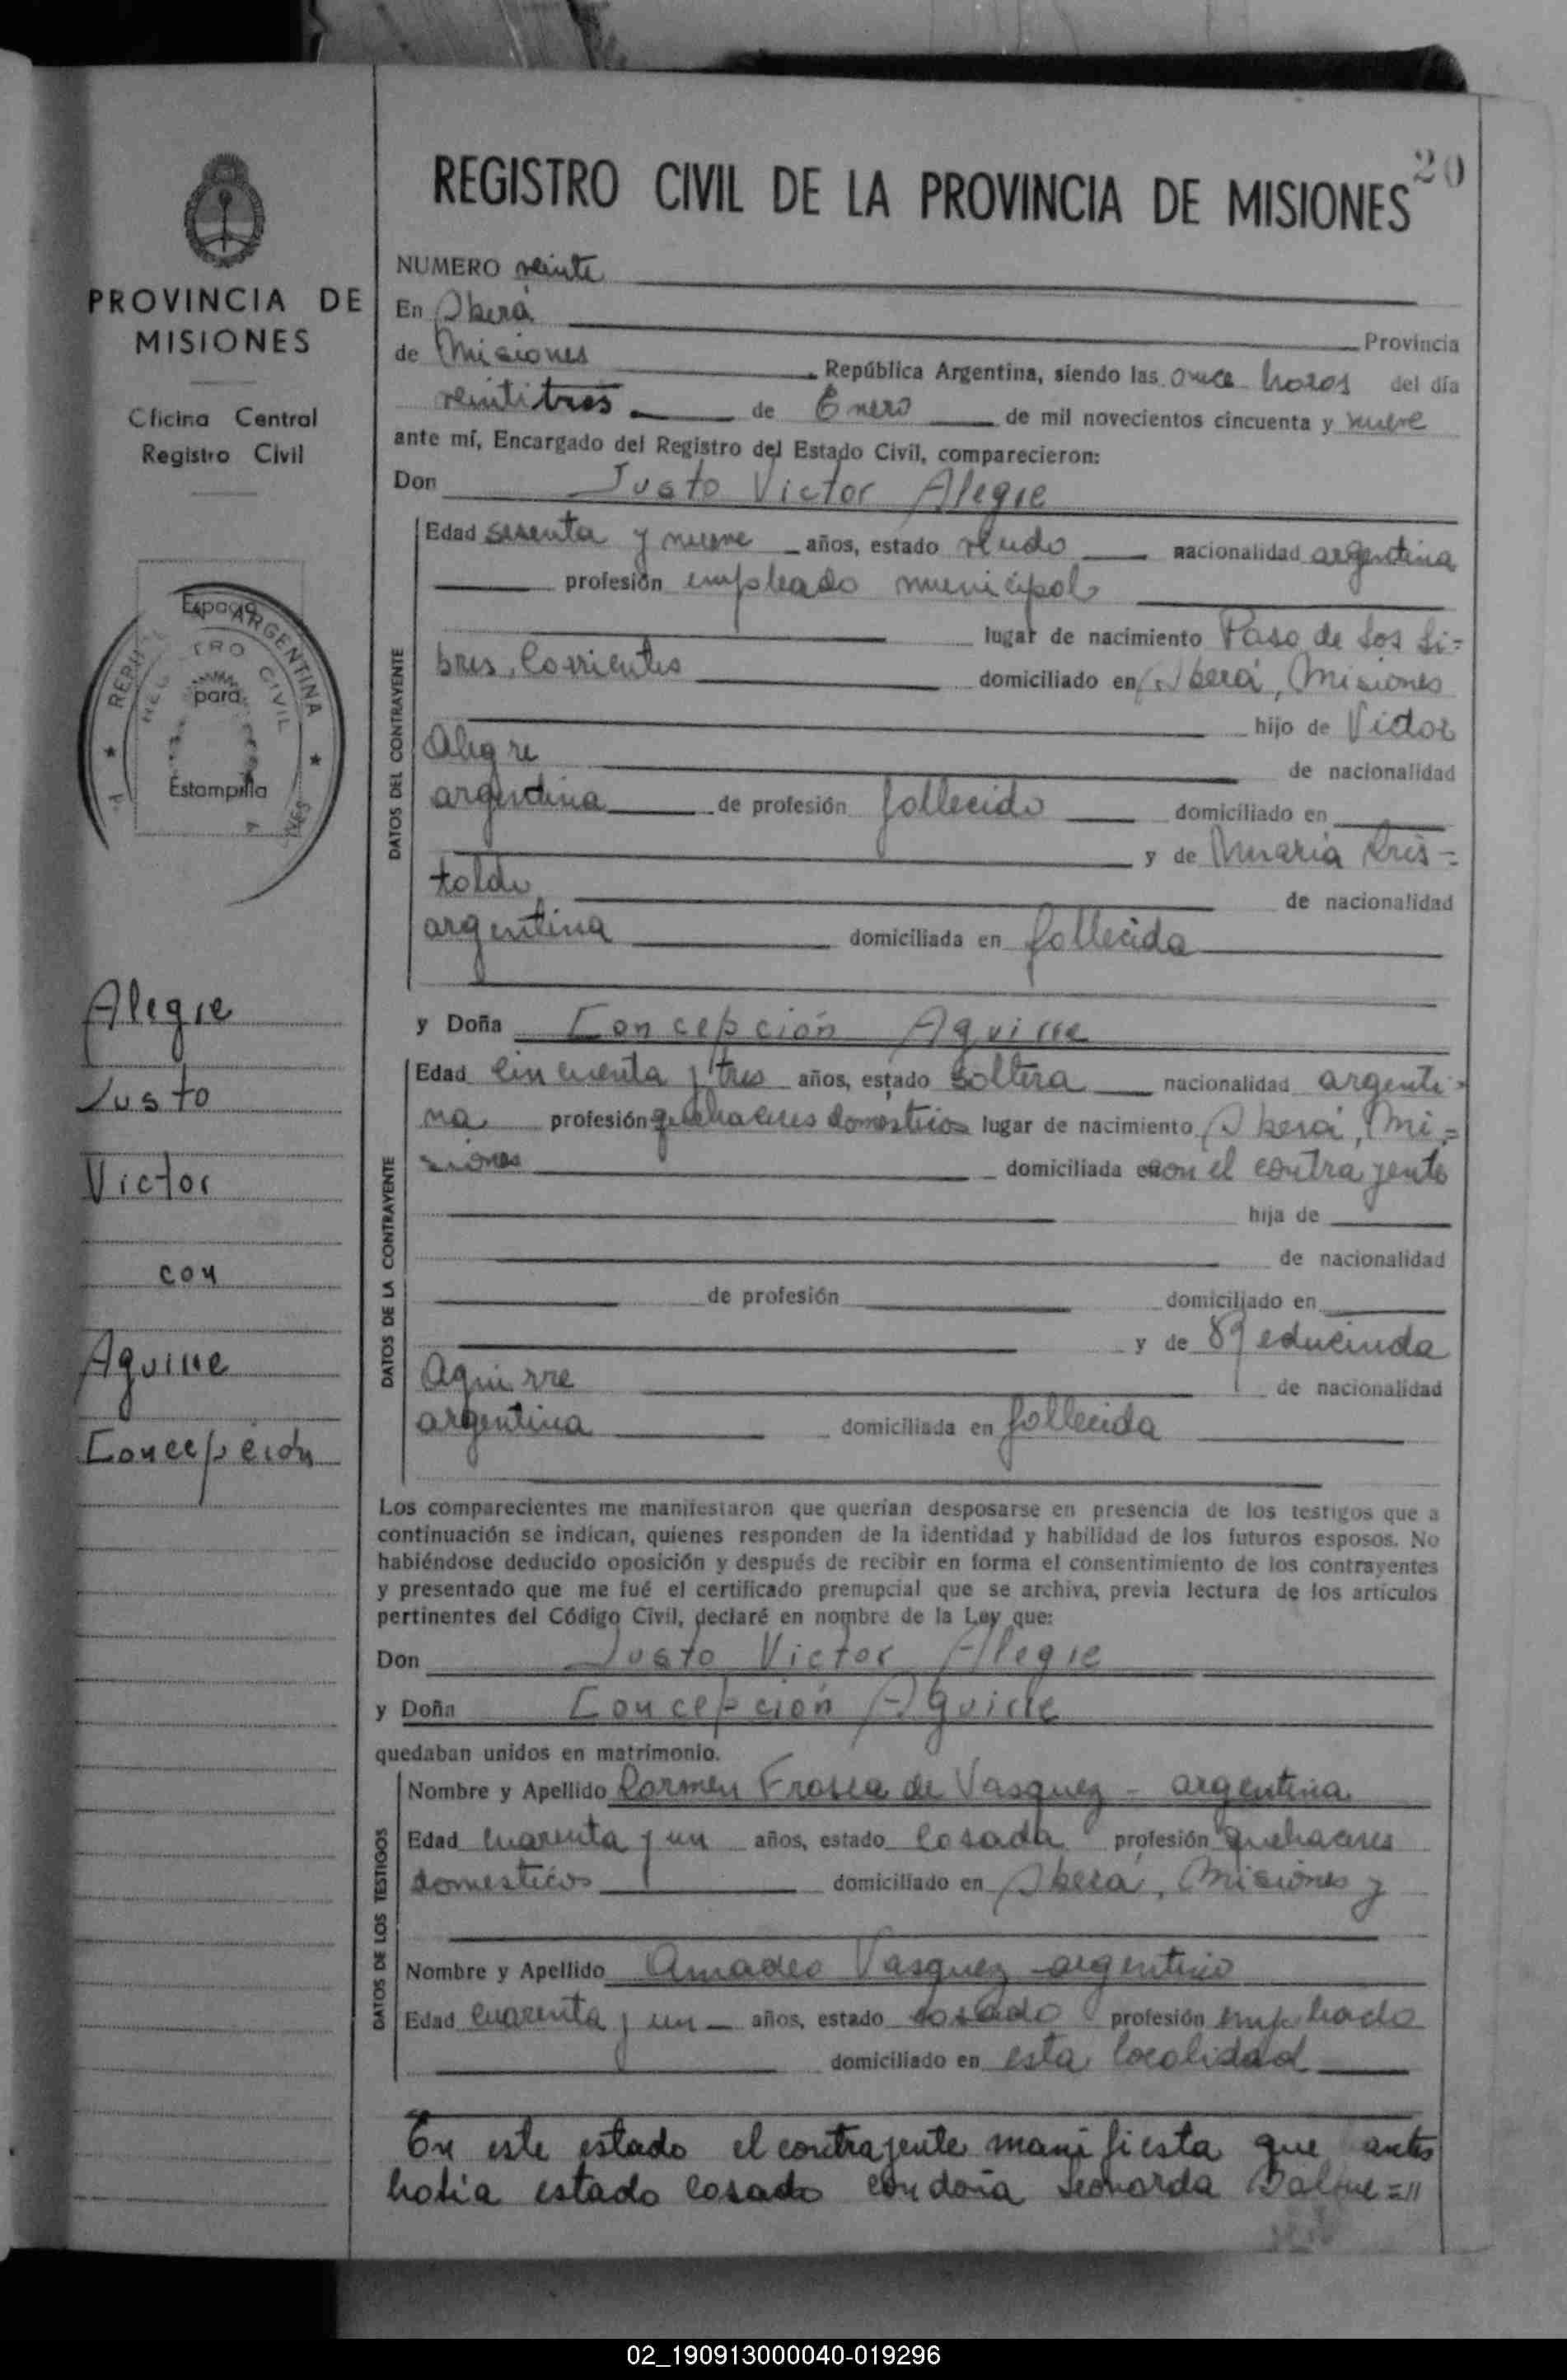 20
REGISTRO CIVIL DE LA PROVINCIA DE MISIONES
PROVINCIA DE
MISIONES
Oficina Central
Registro Civil
Espacio
para
Estampilla
REPUBLICA ARGENTINA
REGISTRO CIVIL
Alegre
Justo
Victor
con
Aguirre
Concepción
NUMERO veinte
En Oberá Provincia
de Misiones República Argentina, siendo las once horas del día
veintitres de Enero de mil novecientos cincuenta y nueve
ante mí, Encargado del Registro del Estado Civil, comparecieron:
Don Justo Victor Alegre
DATOS DEL CONTRAYENTE
Edad sesenta y nueve años, estado viudo nacionalidad argentina
profesión empleado municipal
lugar de nacimiento Paso de los Li=
bres, Corrientes domiciliado en Oberá, Misiones
hijo de Victor
Alegre de nacionalidad
argentina de profesión fallecido domiciliado en
y de Maria Cris=
taldo de nacionalidad
argentina domiciliada en fallecida
y Doña Concepción Aguirre
DATOS DE LA CONTRAYENTE
Edad cincuenta y tres años, estado soltera nacionalidad argenti=
na profesión quehaceres domesticos lugar de nacimiento Oberá, Mi=
siones domiciliada con el contrayente
hija de
de nacionalidad
de profesión domiciliado en
y de educinda
Aguirre de nacionalidad
argentina domiciliada en fallecida
Los comparecientes me manifestaron que querían desposarse en presencia de los testigos que a
continuación se indican, quienes responden de la identidad y habilidad de los futuros esposos. No
habiéndose deducido oposición y después de recibir en forma el consentimiento de los contrayentes
y presentado que me fué el certificado prenupcial que se archiva, previa lectura de los artículos
pertinentes del Código Civil, declaré en nombre de la Ley que:
Don Justo Victor Alegre
y Doña Concepción Aguirre
quedaban unidos en matrimonio.
DATOS DE LOS TESTIGOS
Nombre y Apellido Carmen de Vasquez - argentina
Edad cuarenta y un años, estado casada profesión quehaceres
domesticos domiciliado en Oberá, Misiones y
Nombre y Apellido Amadeo Vasquez argentino
Edad cuarenta y un años, estado casado profesión empleado
domiciliado en esta localidad
En este estado el contrayente manifiesta que antes
habia estado casado con doña Leonarda
02_190913000040-019296